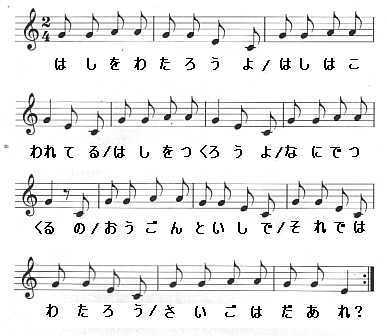 2/4
はしをわたろうよ/はしはこ
われてる/はしをつくろうよ/なにでつ
くるの/おうごんといしで/それでは
わたろう/さいごはだあれ?